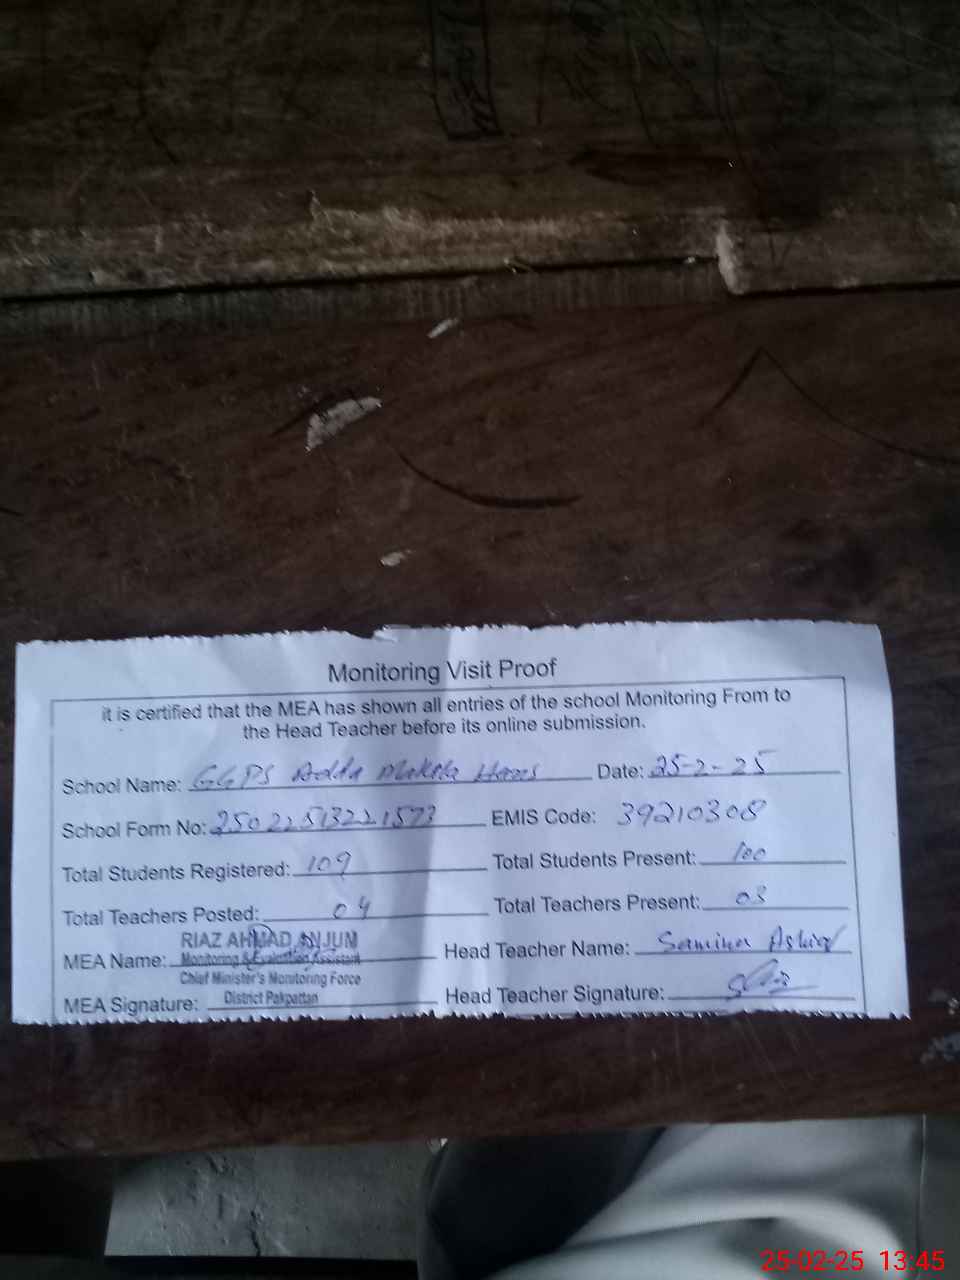 Monitoring Visit Proof
it is certified that the MEA has shown all entries of the school Monitoring From to
the Head Teacher before its online submission.
School Name: GGPS Adda Hans Date: 25-2-25
School Form No: EMIS Code: 39210308
Total Students Registered: 109 Total Students Present: 100
Total Teachers Posted: 04 Total Teachers Present: 03
RIAZ AHMAD ANJUM
MEA Name: Monitoring & Evaluation Assistant Head Teacher Name: Samina Ashiq
Chief Minister's Monitoring Force
MEA Signature: District Pakpattan Head Teacher Signature:
25-02-25 13:45